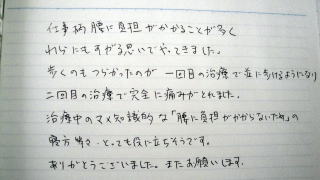 仕事柄腰に負担がかかることが多く
わらにもすがる思いでやってきました。
歩くのもつらかったのが一回目の治療で立に歩けるようになり
二回目の治療で完全に痛みがとれました。
治療中のマメ知識的な「腰に負担がかからないための
寝方等々・とっても役に立ちそうです。
ありがとうございました。またお願いします。